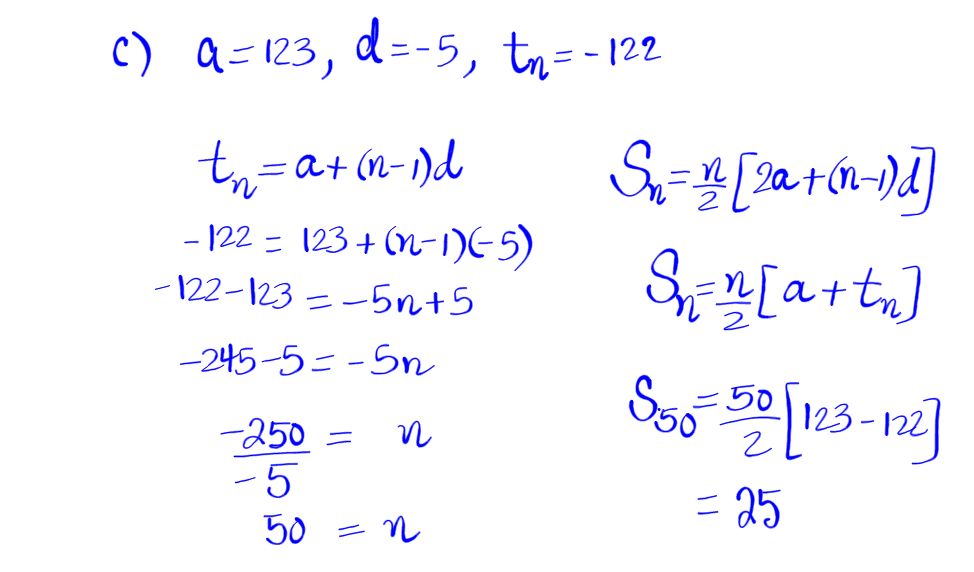 c) a = 123, d = -5, tn = -122
tn = a + (n-1)d
-122 = 123 + (n-1)(-5)
-122-123 = -5n+5
-245-5 = -5n
-250/-5 = n
50 = n
Sn = n/2 [2a+(n-1)d]
Sn = n/2 [a+tn]
S50 = 50/2 [123-122]
= 25